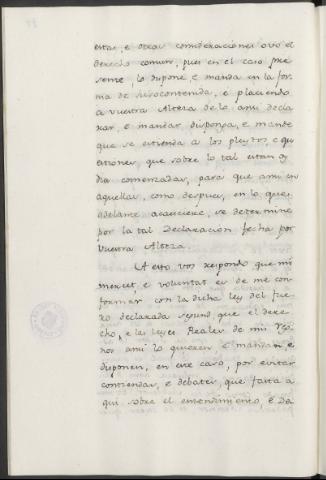 estas, e otras consideraciones ovo el
derecho comun, pues en el caso pre
sente, lo dispone, e manda en la for
ma de susocontenida, e placiendo
a vuestra Alteza de lo ansi decla
rar, e mandar, disponga, e mande
que se estienda a los pleytos, e qu
estiones, que sobre lo tal estan oy
dia comenzadas, para que ansi en
aquellas, como despues, en lo que
adelante acaesciere, se determine
por la tal Declaracion fecha por
Vuestra Alteza.
A esto vos respondo que mi
merced, e voluntat es de me con
formar con la dicha ley del fue
ro declarada segund que el dere
cho, e las leyes Reales de mis Rey
nos ansi lo quieren e mandan e
disponen, en este caso, por evitar
contiendas, e debates, que fasta a
qui sobre el entendimiento, e da